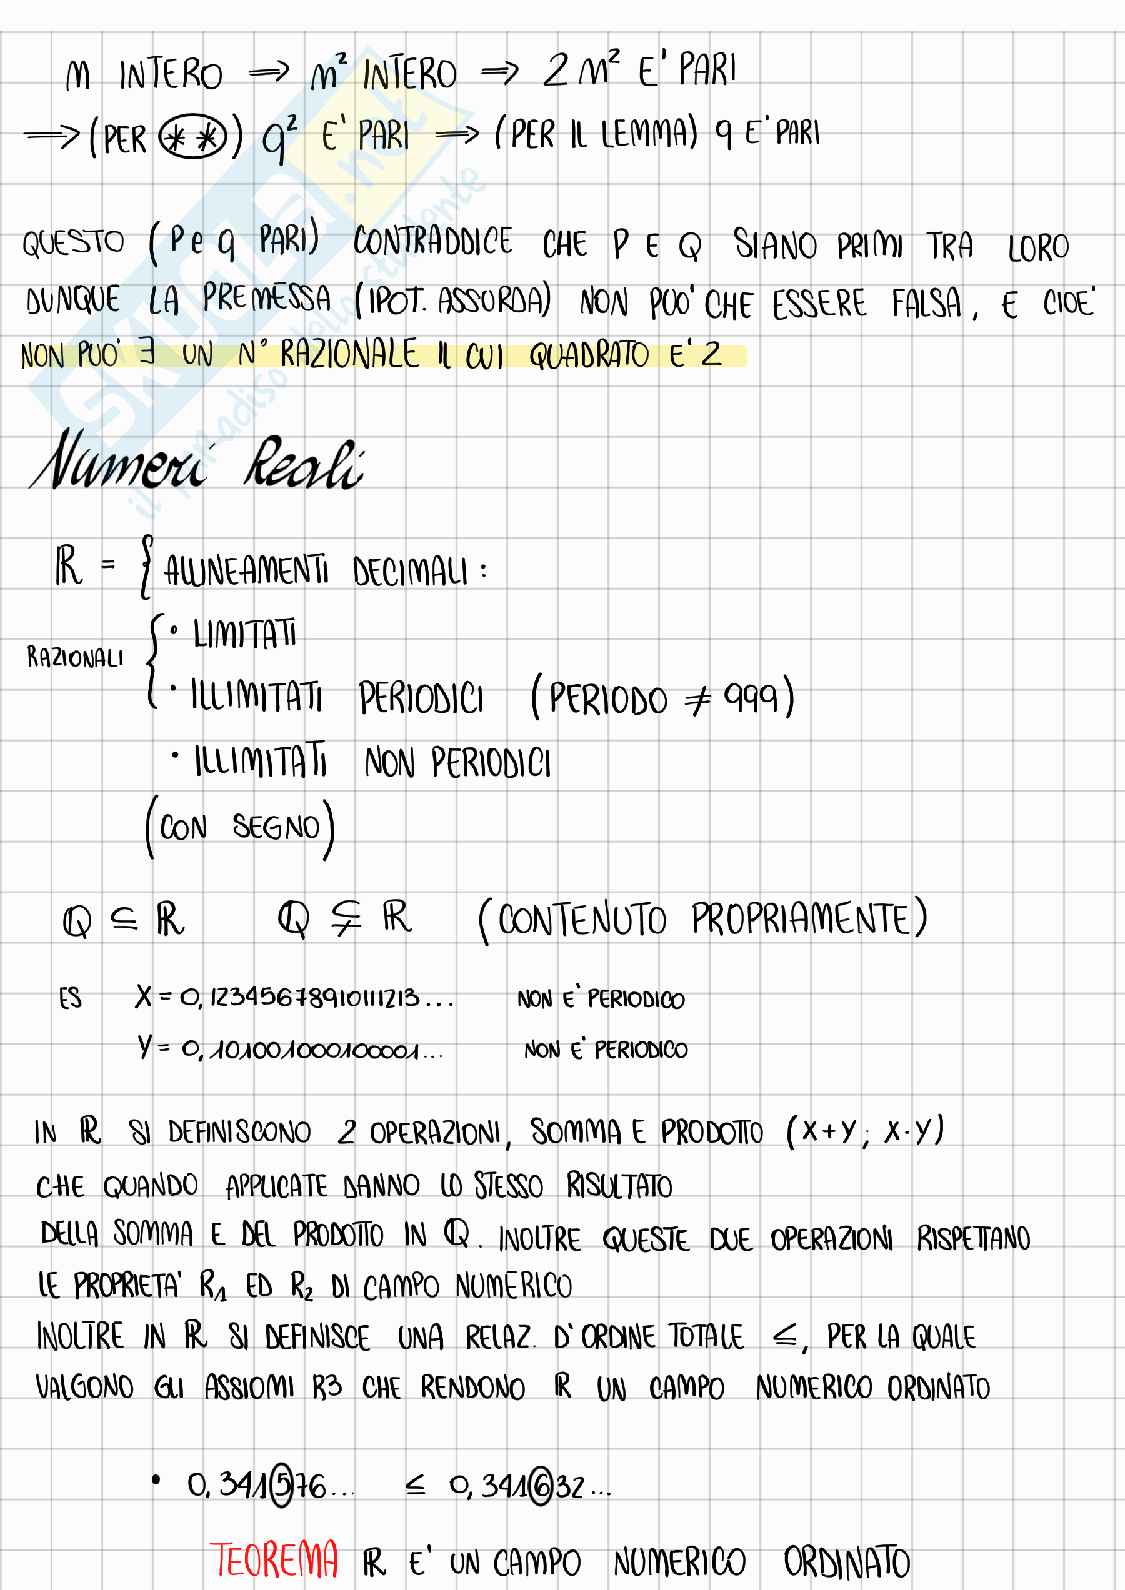 m INTERO ⟹ m² INTERO ⟹ 2m² E' PARI
⟹ (PER **) q² E' PARI ⟹ (PER IL LEMMA) q E' PARI
QUESTO (P e q PARI) CONTRADDICE CHE P E Q SIANO PRIMI TRA LORO
DUNQUE LA PREMESSA (IPOT. ASSURDA) NON PUO' CHE ESSERE FALSA, E CIOE'
NON PUO' ∃ UN N° RAZIONALE IL CUI QUADRATO E' 2
Numeri Reali
ℝ = { ALLINEAMENTI DECIMALI :
RAZIONALI { • LIMITATI
• ILLIMITATI PERIODICI (PERIODO ≠ 999)
• ILLIMITATI NON PERIODICI
(CON SEGNO)
ℚ ⊆ ℝ ℚ ⊊ ℝ (CONTENUTO PROPRIAMENTE)
ES X = 0,12345678910111213... NON E' PERIODICO
Y = 0,101001000100001... NON E' PERIODICO
IN ℝ SI DEFINISCONO 2 OPERAZIONI, SOMMA E PRODOTTO (X+Y; X·Y)
CHE QUANDO APPLICATE DANNO LO STESSO RISULTATO
DELLA SOMMA E DEL PRODOTTO IN ℚ. INOLTRE QUESTE DUE OPERAZIONI RISPETTANO
LE PROPRIETA' R₁ ED R₂ DI CAMPO NUMERICO
INOLTRE IN ℝ SI DEFINISCE UNA RELAZ. D'ORDINE TOTALE ≤, PER LA QUALE
VALGONO GLI ASSIOMI R3 CHE RENDONO ℝ UN CAMPO NUMERICO ORDINATO
• 0,341576... ≤ 0,341632...
TEOREMA ℝ E' UN CAMPO NUMERICO ORDINATO
SKUOLA.net
il paradiso dello studente